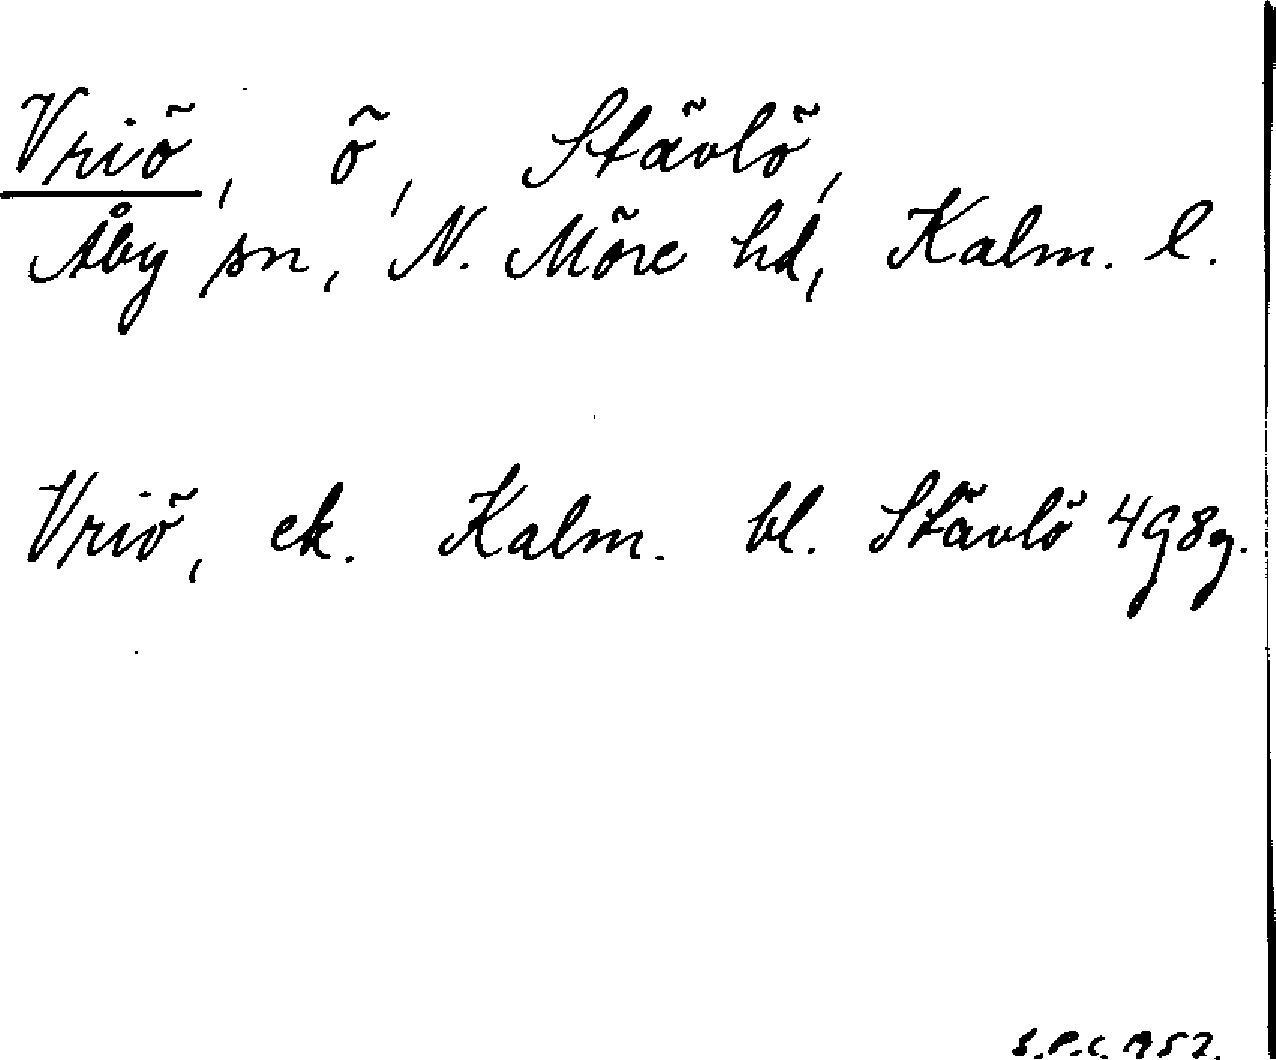 Vriö, ö, Stävlö,
Åby sn, N. Möre hd, Kalm. l.
Vriö, ek. Kalm. bl. Stävlö 4g8g.
S.P.C. 1952.